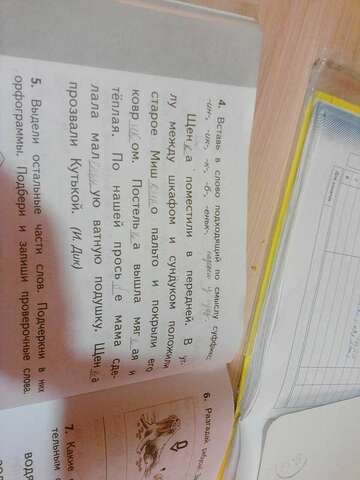 4. Вставь в слово подходящий по смыслу суффикс:
-ик-, -ок-, -к-, -б-, -еньк-,
Щенка поместили в передней. В уг-
лу между шкафом и сундуком положили
старое Мишкино пальто и покрыли его
ковриком. Постелька вышла мягкая и
тёплая. По нашей просьбе мама сде-
лала маленькую ватную подушку. Щенка
прозвали Кутькой. (И. Дик)
5. Выдели остальные части слов. Подчеркни в них
орфограммы. Подбери и запиши проверочные слова.
6. Разгадай
7. Какие
тельным
водя